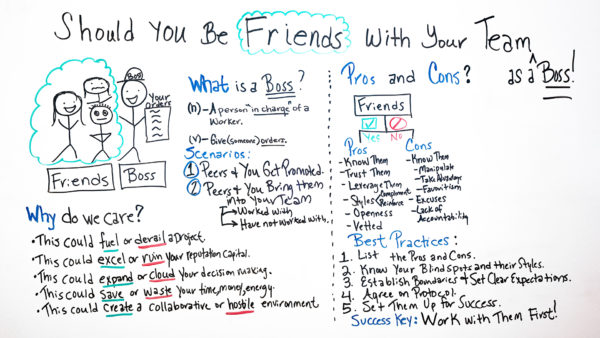 Should You Be Friends With Your Team
as a Boss!
Boss
Your
Orders
Friends
Boss
What is a Boss?
(n) - A person "in charge" of a
Worker.
(v) - Give (someone) orders.
Scenarios:
1 Peers & You Get Promoted.
2 Peers & You Bring them
into Your Team
Worked with
Have not worked with.
Why do we care?
• This could fuel or derail a Project.
• This could excel or ruin Your reputation Capital.
• This could expand or cloud Your decision making.
• This could save or waste Your time, money, energy.
• This could create a collaborative or hostile environment
Pros and Cons?
Friends
Yes
No
Pros
- Know Them
- Trust Them
- Leverage Them
- Styles Compliment
Reinforce
- Openness
- Vetted
Cons
- Know Them
- Manipulate
- Take Advantage
- Favouritism
- Excuses
- Lack of
Accountability
Best Practices:
1. List the Pros and Cons.
2. Know Your Blindspots and their Styles.
3. Establish Boundaries & Set Clear Expectations.
4. Agree on Protocol.
5. Set Them Up for Success.
Success Key: Work with Them First!